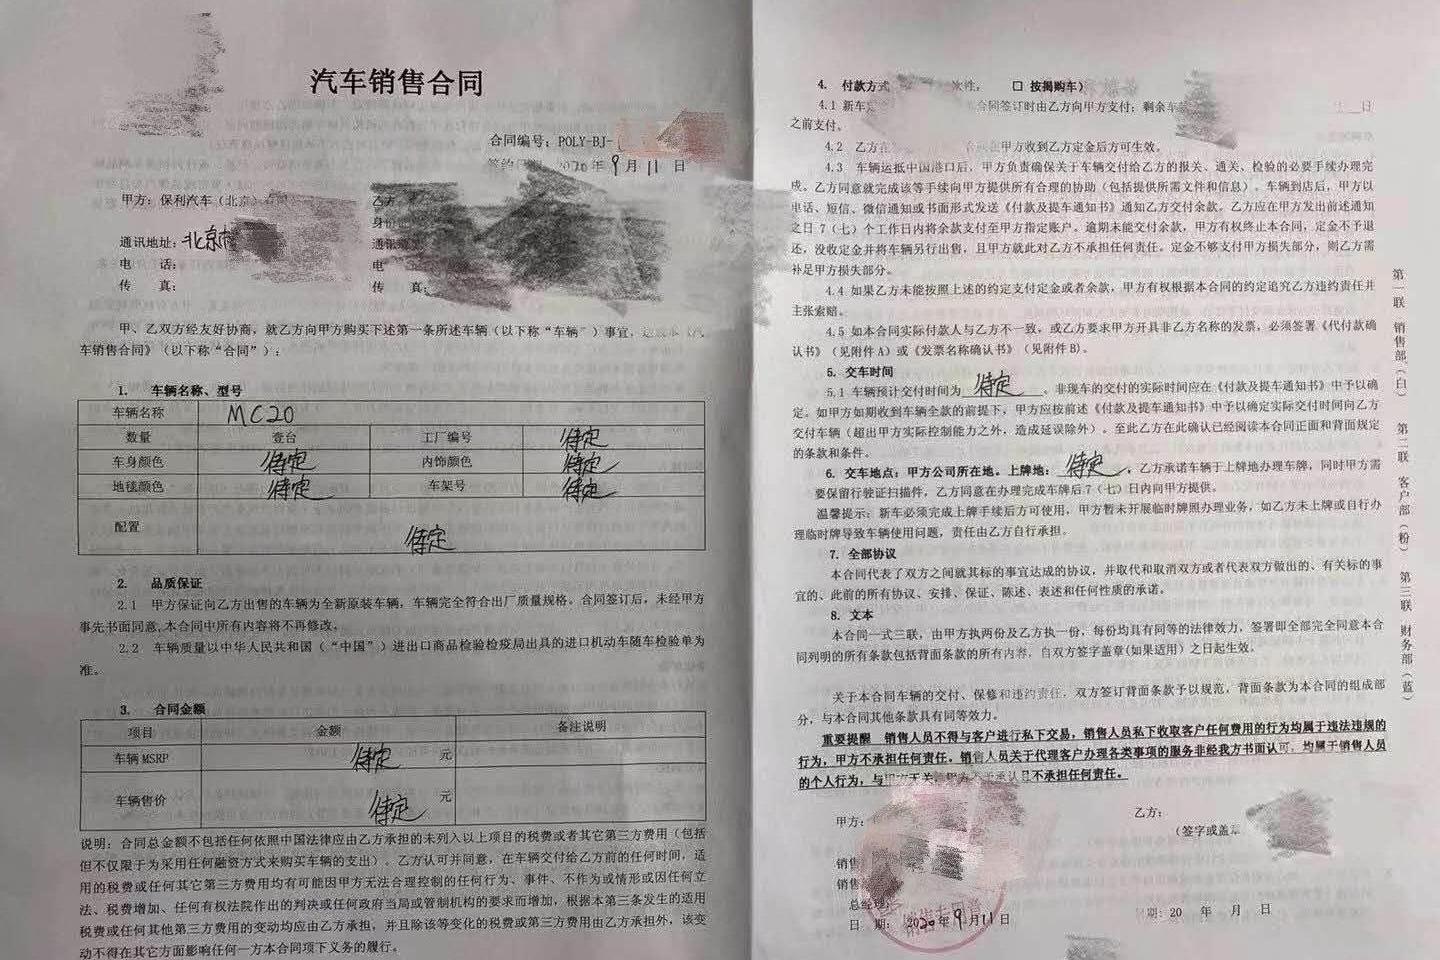 汽车销售合同
合同编号：POLY-BJ-
签约日期 2020年9月11日
甲方：保利汽车（北京）
乙方
身份
通讯地址：北京市
通讯
电 话：
电
传 真：
传 真：
甲、乙双方经友好协商，就乙方向甲方购买下述第一条所述车辆（以下称“车辆”）事宜，达成本《汽
车销售合同》（以下称“合同”）：
1. 车辆名称、型号
车辆名称 MC20
数量 壹台 工厂编号 待定
车身颜色 待定 内饰颜色 待定
地毯颜色 待定 车架号 待定
配置 待定
2. 品质保证
2.1 甲方保证向乙方出售的车辆为全新原装车辆，车辆完全符合出厂质量规格。合同签订后，未经甲方
事先书面同意,本合同中所有内容将不再修改。
2.2 车辆质量以中华人民共和国（“中国”）进出口商品检验检疫局出具的进口机动车随车检验单为
准。
3. 合同金额
项目 金额 备注说明
车辆MSRP 待定 元
车辆售价 待定 元
说明：合同总金额不包括任何依照中国法律应由乙方承担的未列入以上项目的税费或者其它第三方费用（包括
但不仅限于为采用任何融资方式来购买车辆的支出）。乙方认可并同意，在车辆交付给乙方前的任何时间，适
用的税费或任何其它第三方费用均有可能因甲方无法合理控制的任何行为、事件、不作为或情形或因任何立
法、税费增加、任何有权法院作出的判决或任何政府当局或管制机构的要求而增加，根据本第三条发生的适用
税费或任何其他第三方费用的变动均应由乙方承担，并且除该等变化的税费或第三方费用由乙方承担外，该变
动不得在其它方面影响任何一方本合同项下义务的履行。
4. 付款方式 □ 按揭购车）
4.1 新车定 合同签订时由乙方向甲方支付；剩余车 日
之前支付。
4.2 乙方在 在甲方收到乙方定金后方可生效。
4.3 车辆运抵中国港口后，甲方负责确保关于车辆交付给乙方的报关、通关、检验的必要手续办理完
成。乙方同意就完成该等手续向甲方提供所有合理的协助（包括提供所需文件和信息）。车辆到店后，甲方以
电话、短信、微信通知或书面形式发送《付款及提车通知书》通知乙方交付余款。乙方应在甲方发出前述通知
之日7（七）个工作日内将余款支付至甲方指定账户。逾期未能交付余款，甲方有权终止本合同，定金不予退
还，没收定金并将车辆另行出售，且甲方就此对乙方不承担任何责任。定金不够支付甲方损失部分，则乙方需
补足甲方损失部分。
4.4 如果乙方未能按照上述的约定支付定金或者余款，甲方有权根据本合同的约定追究乙方违约责任并
主张索赔。
4.5 如本合同实际付款人与乙方不一致，或乙方要求甲方开具非乙方名称的发票，必须签署《代付款确
认书》（见附件A）或《发票名称确认书》（见附件B）。
5. 交车时间
5.1 车辆预计交付时间为 待定 。非现车的交付的实际时间应在《付款及提车通知书》中予以确
定。如甲方如期收到车辆全款的前提下，甲方应按前述《付款及提车通知书》中予以确定实际交付时间向乙方
交付车辆（超出甲方实际控制能力之外，造成延误除外）。至此乙方在此确认已经阅读本合同正面和背面规定
的条款和条件。
6. 交车地点：甲方公司所在地。上牌地： 待定 ，乙方承诺车辆于上牌地办理车牌，同时甲方需
要保留行驶证扫描件，乙方同意在办理完成车牌后7（七）日内向甲方提供。
温馨提示：新车必须完成上牌手续后方可使用，甲方暂未开展临时牌照办理业务，如乙方未上牌或自行办
理临时牌导致车辆使用问题，责任由乙方自行承担。
7. 全部协议
本合同代表了双方之间就其标的事宜达成的协议，并取代和取消双方或者代表双方做出的、有关标的事
宜的、此前的所有协议、安排、保证、陈述、表述和任何性质的承诺。
8. 文本
本合同一式三联，由甲方执两份及乙方执一份，每份均具有同等的法律效力，签署即全部完全同意本合
同列明的所有条款包括背面条款的所有内容，自双方签字盖章(如果适用)之日起生效。
关于本合同车辆的交付、保修和违约责任，双方签订背面条款予以规范，背面条款为本合同的组成部
分，与本合同其他条款具有同等效力。
重要提醒 销售人员不得与客户进行私下交易，销售人员私下收取客户任何费用的行为均属于违法违规的
行为，甲方不承担任何责任。销售人员关于代理客户办理各类事项的服务非经我方书面认可，均属于销售人员
的个人行为，与甲方无关 承认且不承担任何责任。
甲方：
乙方：
（签字或盖章
销售
销售
总经理
日 期： 2020年9月11日
日期：20 年 月 日
第一联 销售部（白） 第二联 客户部（粉） 第三联 财务部（蓝）